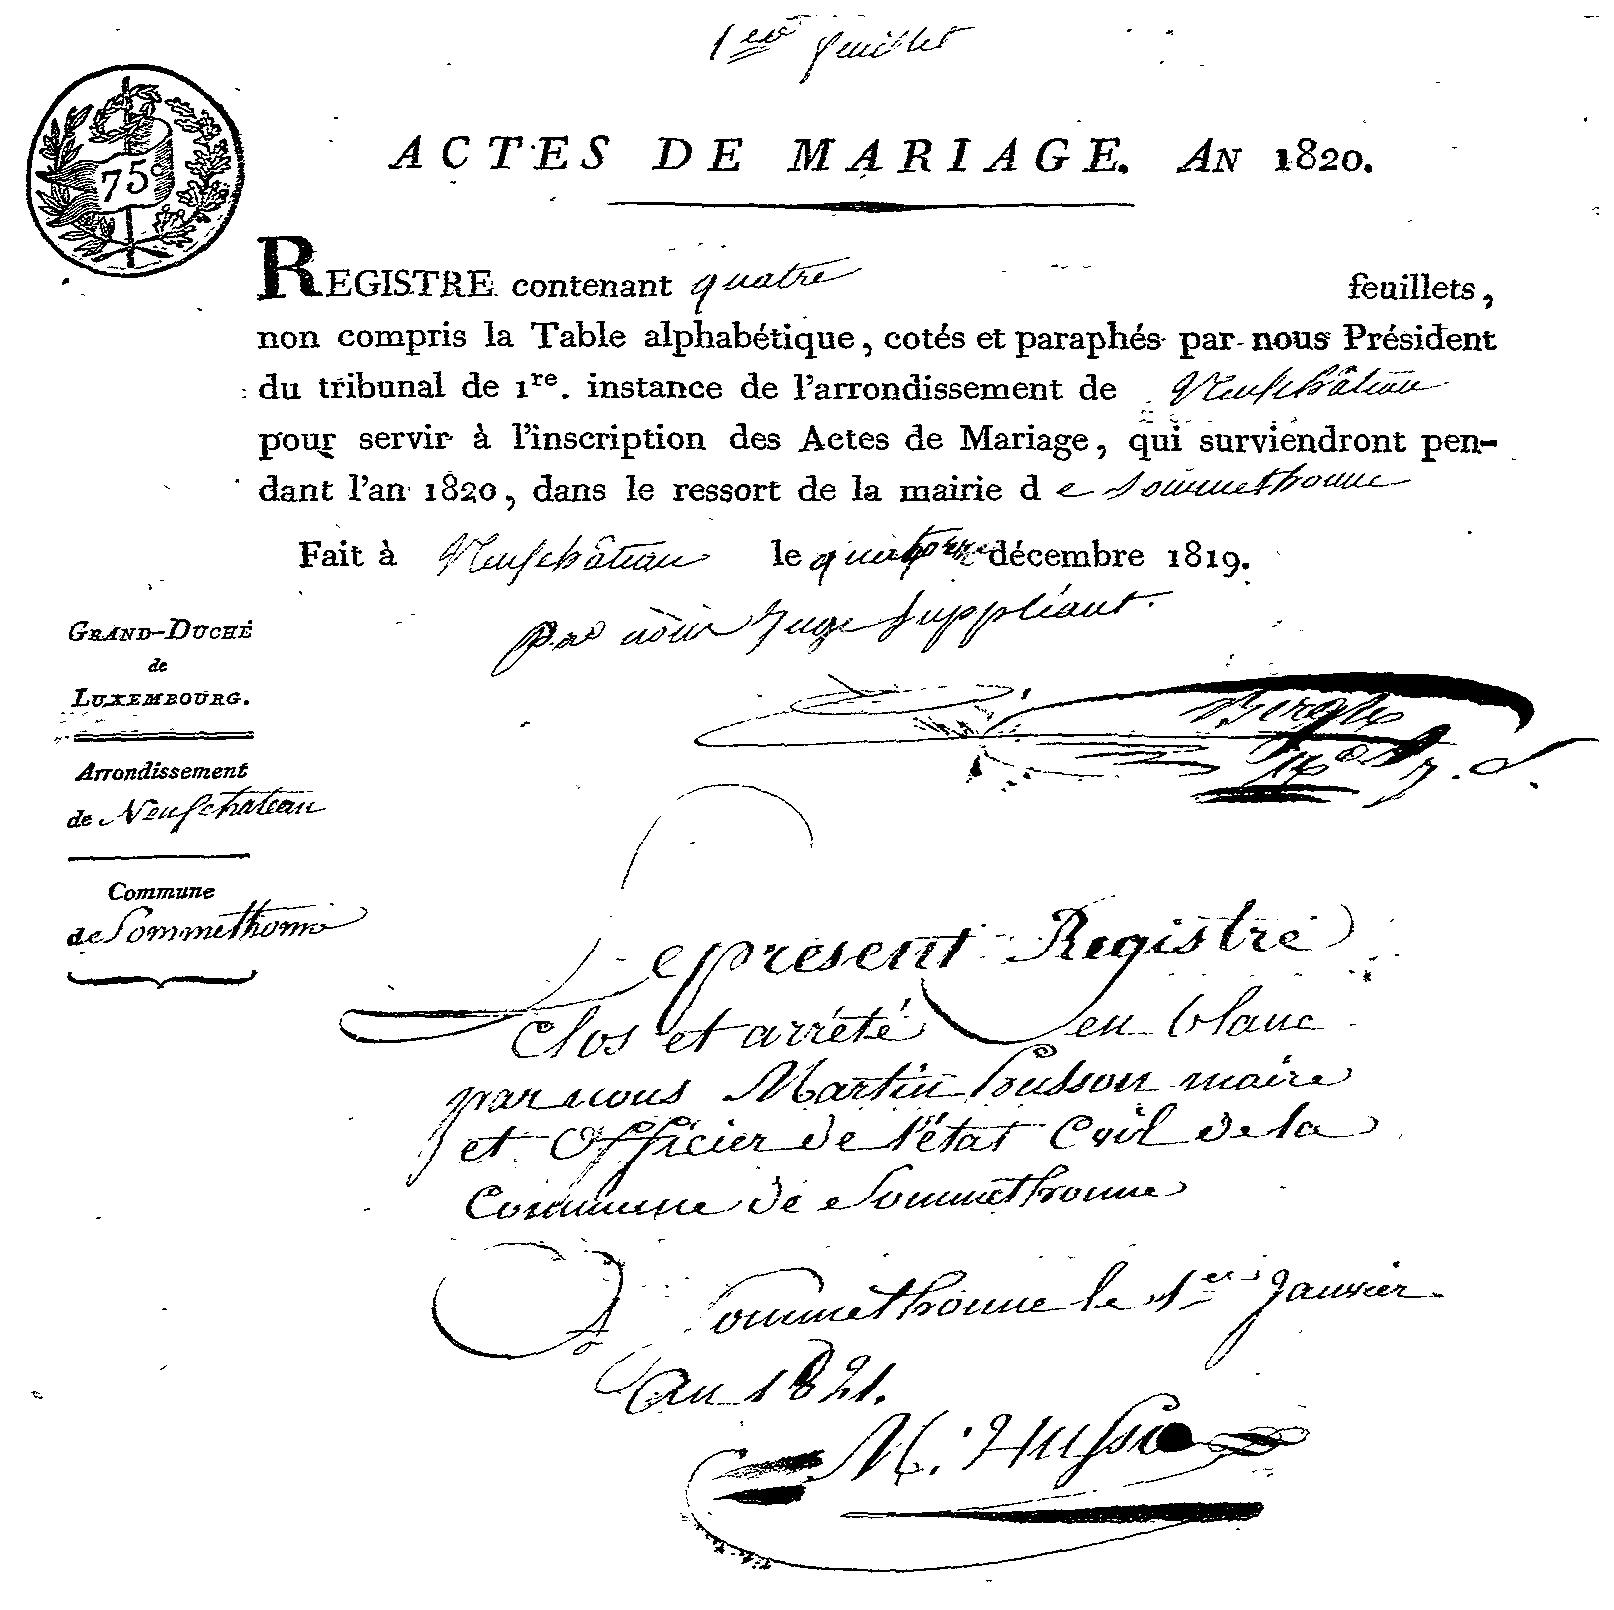 1er feuillet
75c
ACTES DE MARIAGE. AN 1820.
REGISTRE contenant quatre feuillets,
non compris la Table alphabétique, cotés et paraphés par nous Président
du tribunal de 1re. instance de l'arrondissement de Neufchâteau
pour servir à l'inscription des Actes de Mariage, qui surviendront pen-
dant l'an 1820, dans le ressort de la mairie de Sommethonne
Fait à Neufchâteau le quatorze décembre 1819.
par nous Juge Suppléant.
GRAND-DUCHÉ
de
LUXEMBOURG.
Arrondissement
de Neufchateau
Commune
de Sommethonne
Le présent Registre
Clos et arrêté en blanc
par nous Martin husson maire
et Officier de l'état Civil de la
Commune de Sommethonne
A Sommethonne le 1er Janvier
an 1821.
M. Husson